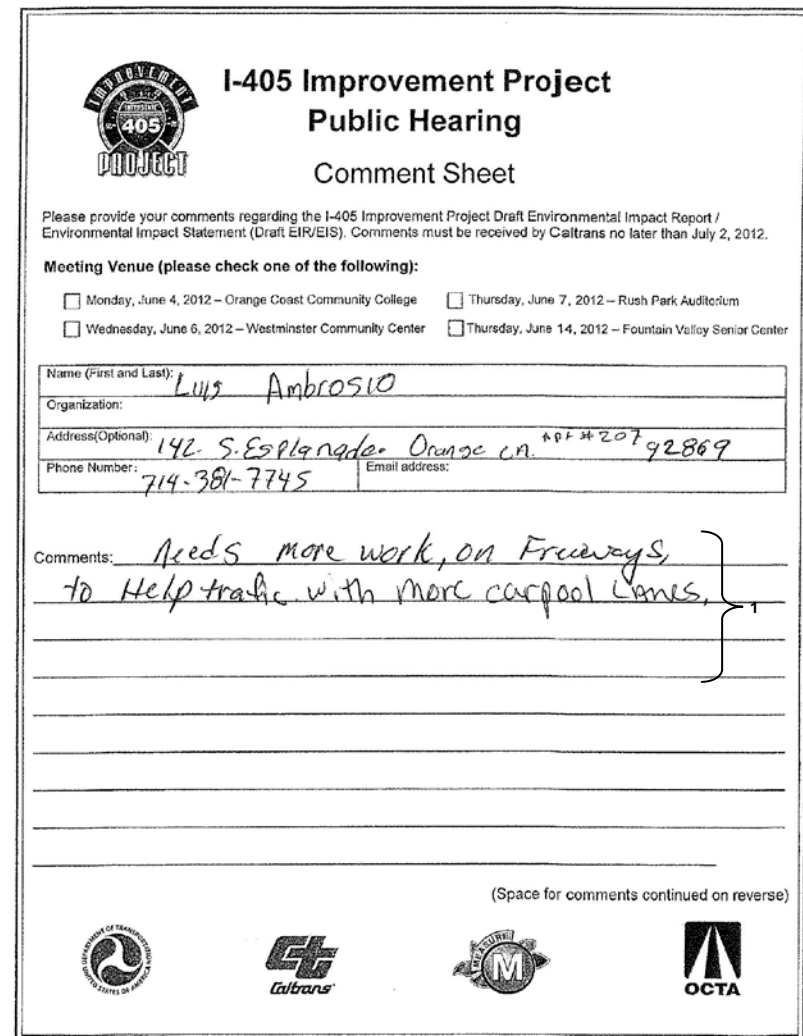 IMPROVEMENT
INTERSTATE
405
PROJECT
I-405 Improvement Project
Public Hearing
Comment Sheet
Please provide your comments regarding the I-405 Improvement Project Draft Environmental Impact Report /
Environmental Impact Statement (Draft EIR/EIS). Comments must be received by Caltrans no later than July 2, 2012.
Meeting Venue (please check one of the following):
Monday, June 4, 2012 – Orange Coast Community College
Thursday, June 7, 2012 – Rush Park Auditorium
Wednesday, June 6, 2012 – Westminster Community Center
Thursday, June 14, 2012 – Fountain Valley Senior Center
Name (First and Last): Luis Ambrosio
Organization:
Address(Optional): 142. S. Esplanade. Orange ca. Apt # 207 92869
Phone Number: 714-381-7745 Email address:
Comments: Needs more work, on Freeways,
to Help trafic with more carpool Lanes,
1
(Space for comments continued on reverse)
DEPARTMENT OF TRANSPORTATION
UNITED STATES OF AMERICA
Ct
Caltrans
MEASURE
M
OCTA